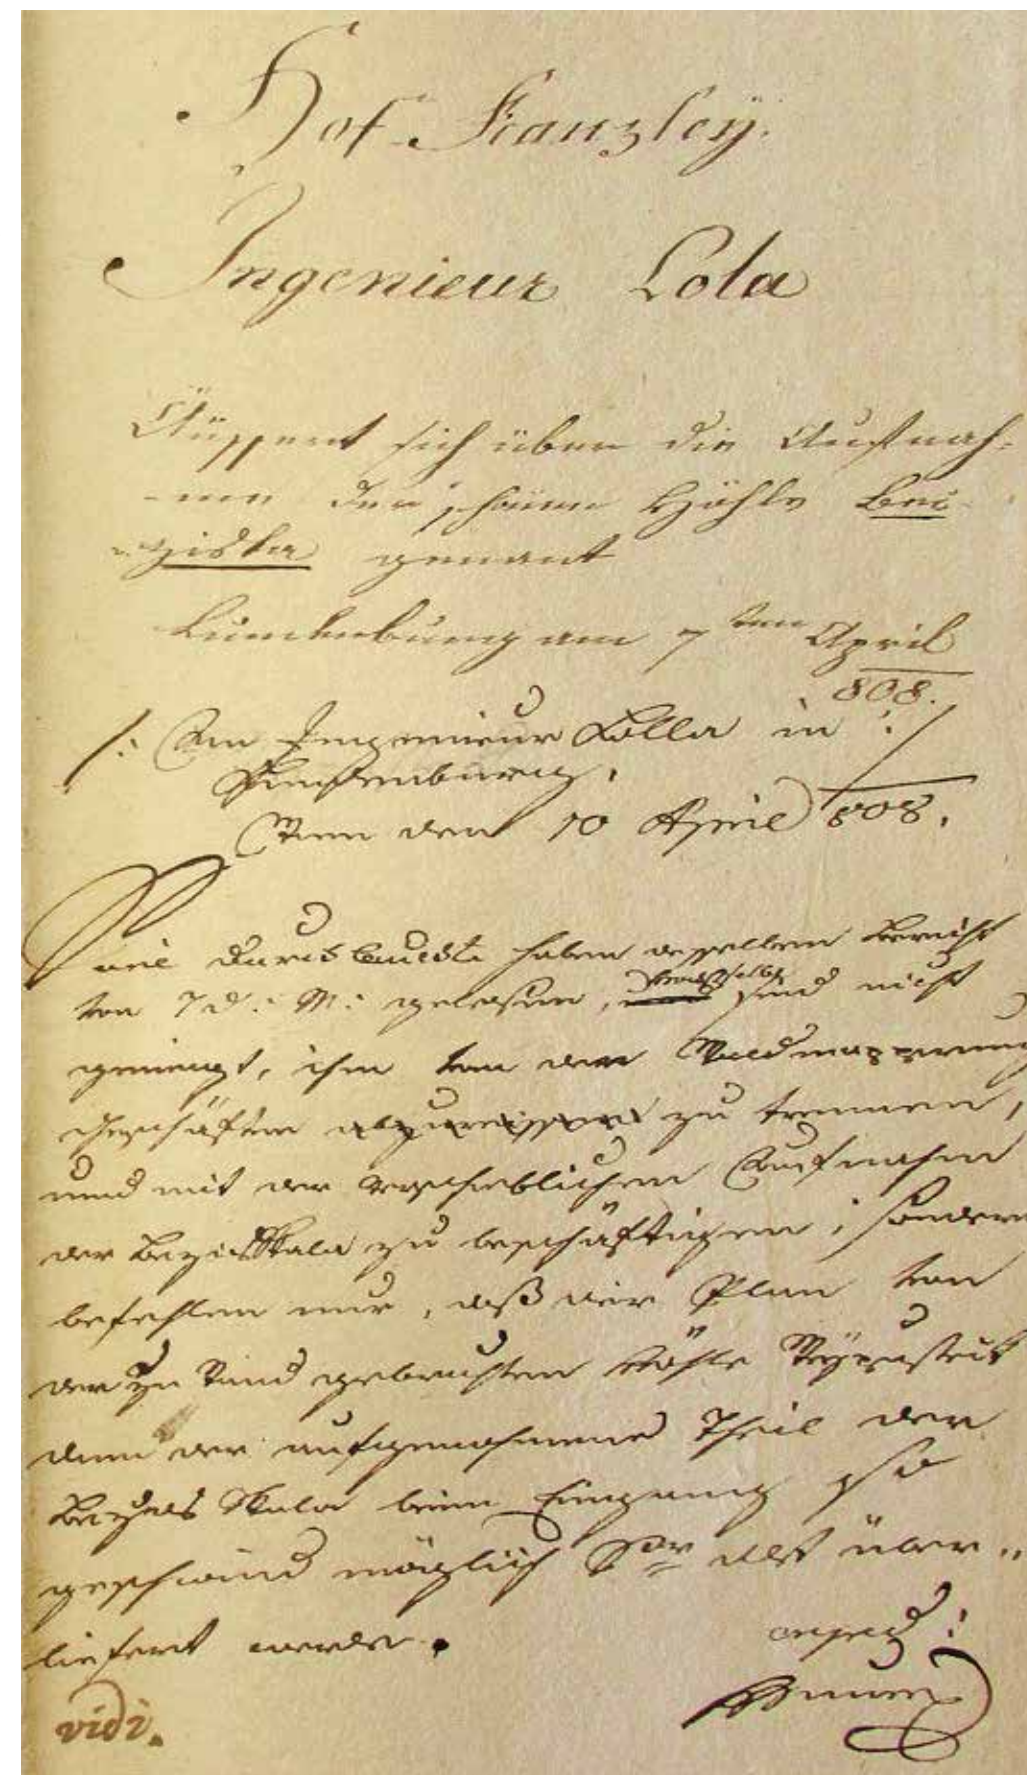 Hof Kanzley.
Ingenieur Lola
Äussert sich über die Aufnah-
-me der schönen Höhle Bei-
-ziskla genant
Lundenburg am 7ten April
808.
/: An Ingenieur Lolla in :/
Lundenburg.
Wien den 10 April 808.
Seine Durchlaucht haben desselben Bericht
von 7 d: M: gelesen, sind nicht
geneigt, ihn von den
Geschäften abzureissen zu trennen,
und mit der Aufnahm
der Beziskala zu beschäftigen; sondern
befehlen nur, daß der Plan von
der zu Stand gebrachten Höhle
dann der aufgenohmene Theil der
Beziskala beim Eingang so
geschwind möglich Sr über-
liefert werde.
exped:
vidi.